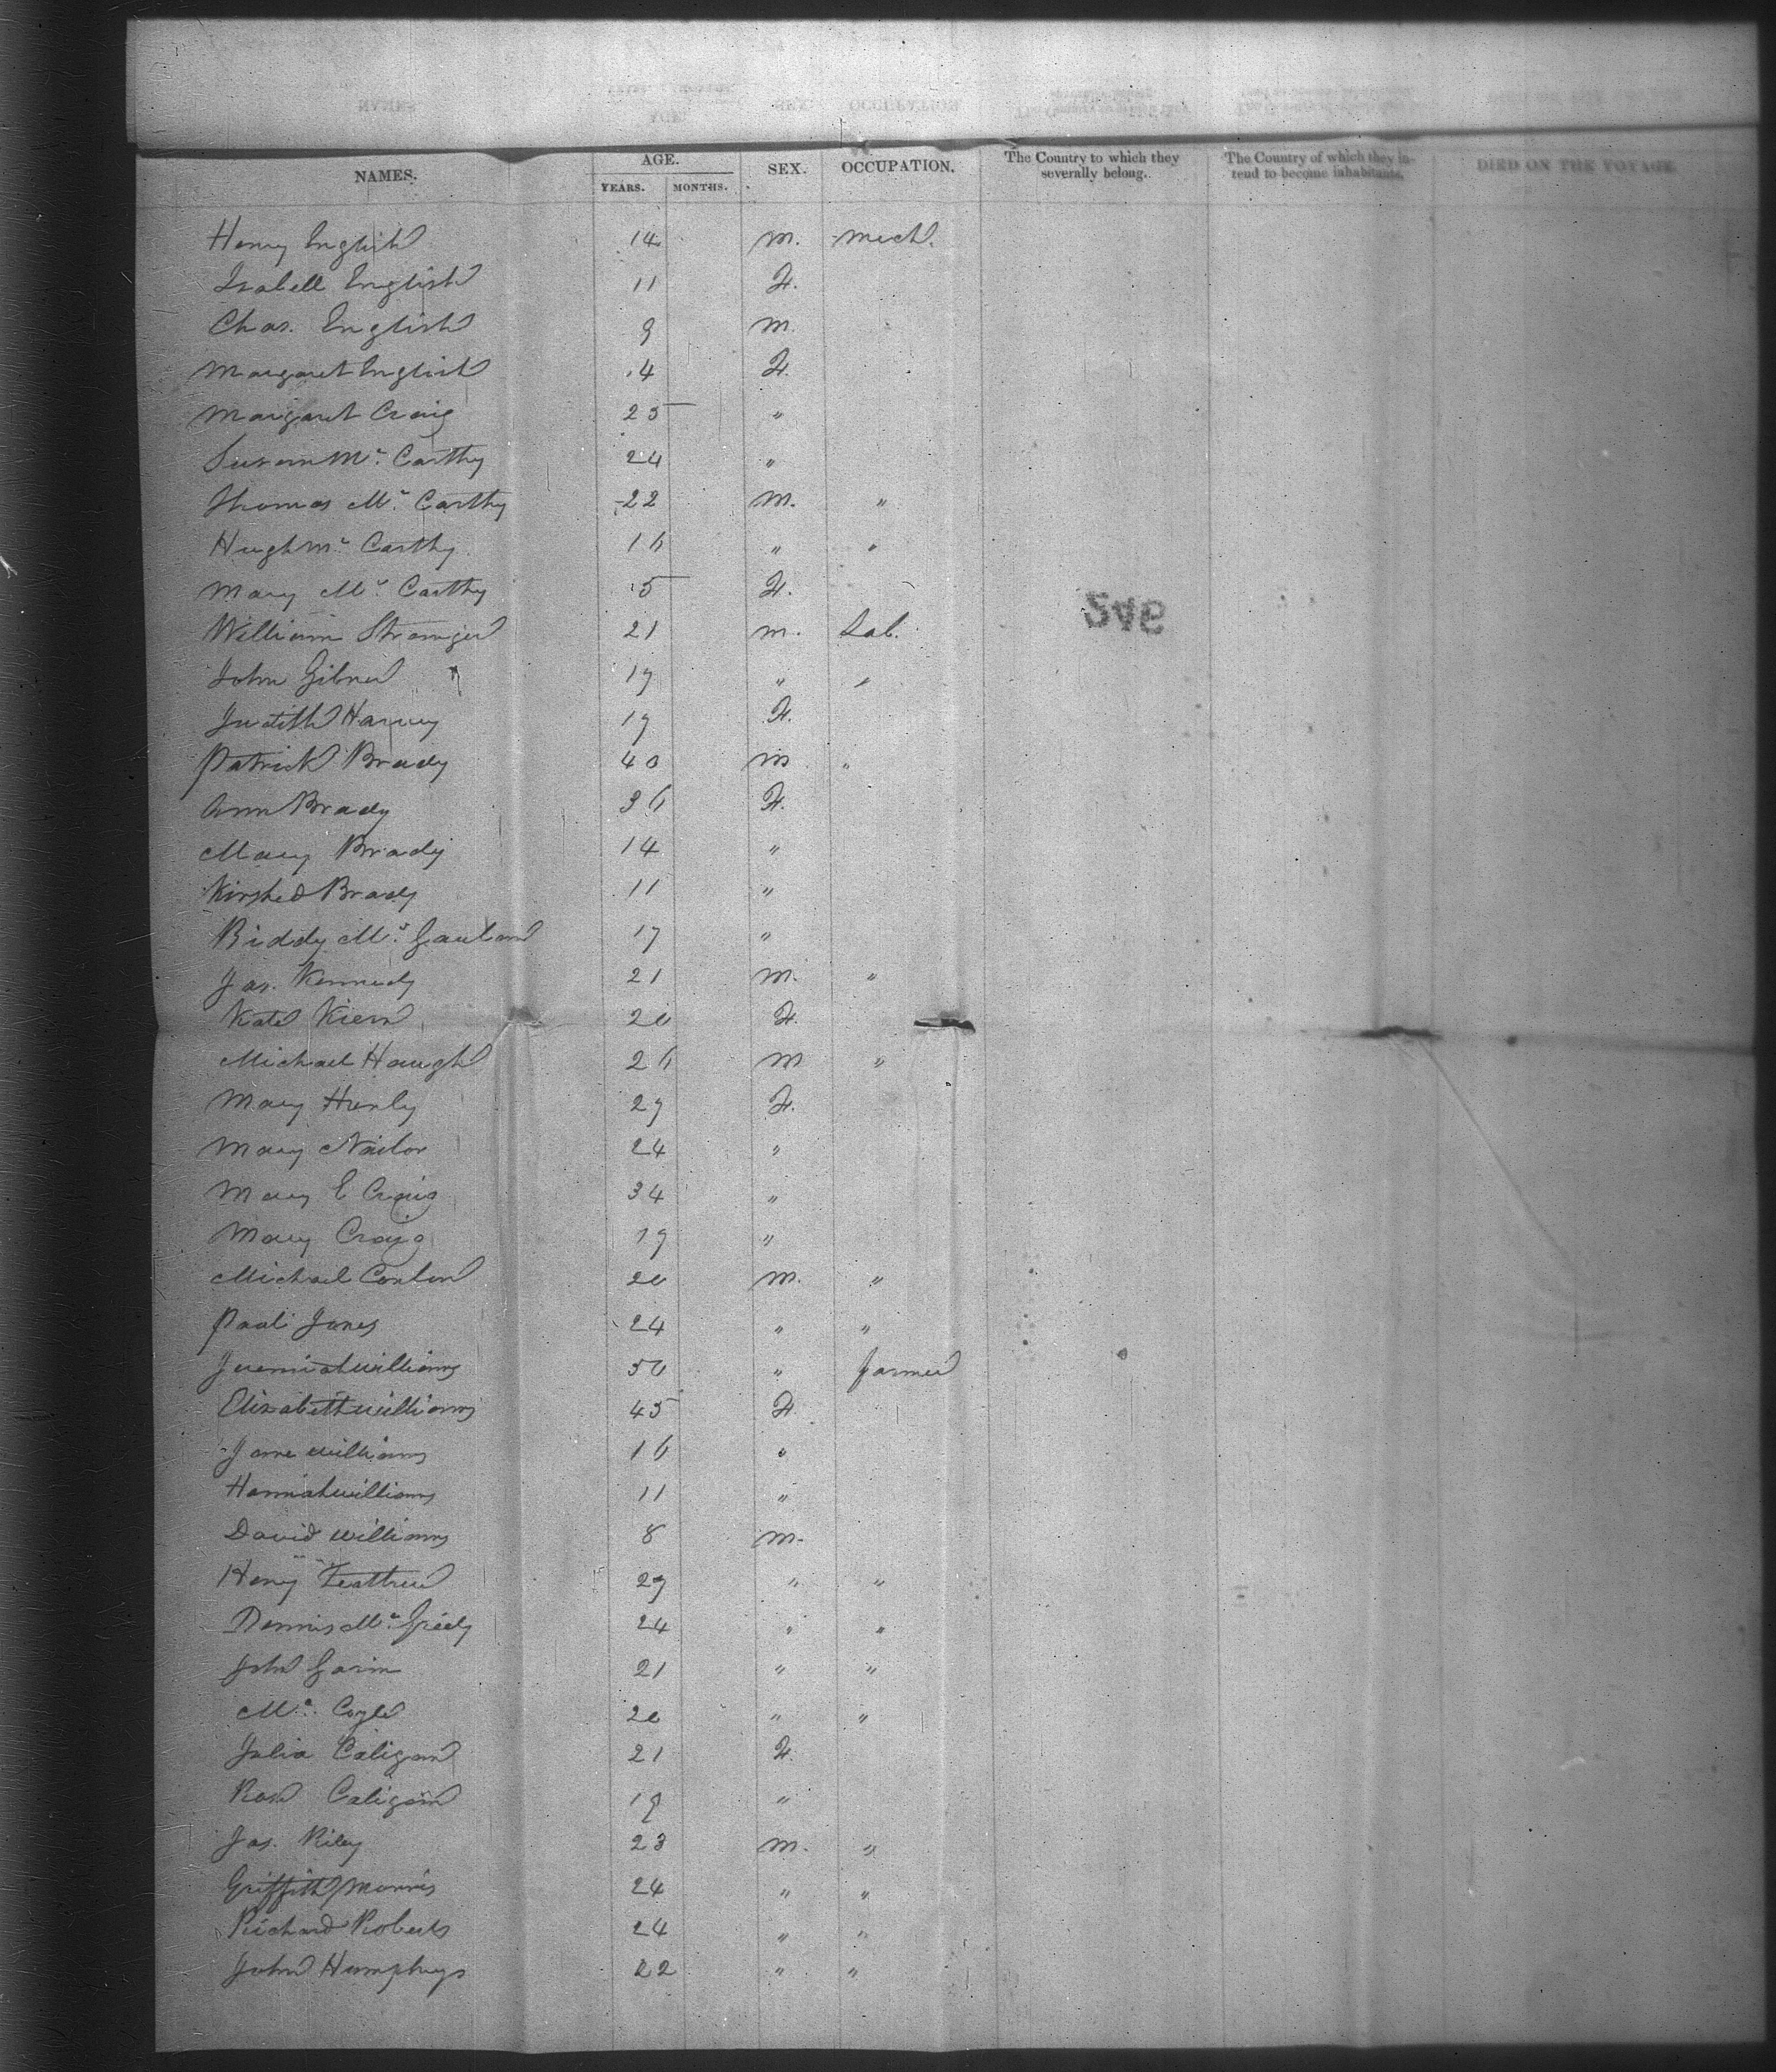 NAMES. AGE. SEX. OCCUPATION. The Country to which they severally belong. The Country of which they intend to become inhabitants. DIED ON THE VOYAGE
YEARS. MONTHS.
Henry English 14 M. Mech.
Isabell English 11 F.
Chas. English 9 M.
Margaret English 4 F.
Margaret Craig 25 "
Susan Mc. Carthy 24 "
Thomas Mc. Carthy 22 M. "
Hugh Mc. Carthy 16 " "
Mary Mc. Carthy 5 F.
William Stranger 21 M. Lab.
John Gibney 19 " "
Judith Harvey 19 F.
Patrick Brady 40 M "
Ann Brady 36 F.
Mary Brady 14 "
Brady 11 "
Biddy Mc. 17 "
Jas. Kennedy 21 M. "
Kate Kiern 20 F.
Michael Haugh 26 M "
Mary Henly 29 F.
Mary Nailor 24 "
Mary E Craig 34 "
Mary Craig 19 "
Michael Conlon 20 M. "
Paul Jones 24 " "
Jeremiah Williams 50 " Farmer
Elizabeth Williams 45 F
Jane Williams 16 "
Hannah Williams 11 "
David Williams 8 M.
Henry 29 " "
Dennis Mc. Greely 24 " "
John Gavin 21 " "
Mc. Coyle 20 " "
Julia Caligan 21 F.
Rose Caligan 19 "
Jas. Riley 23 M. "
Griffith Morris 24 " "
Richard Roberts 24 " "
John Humphrys 22 " "